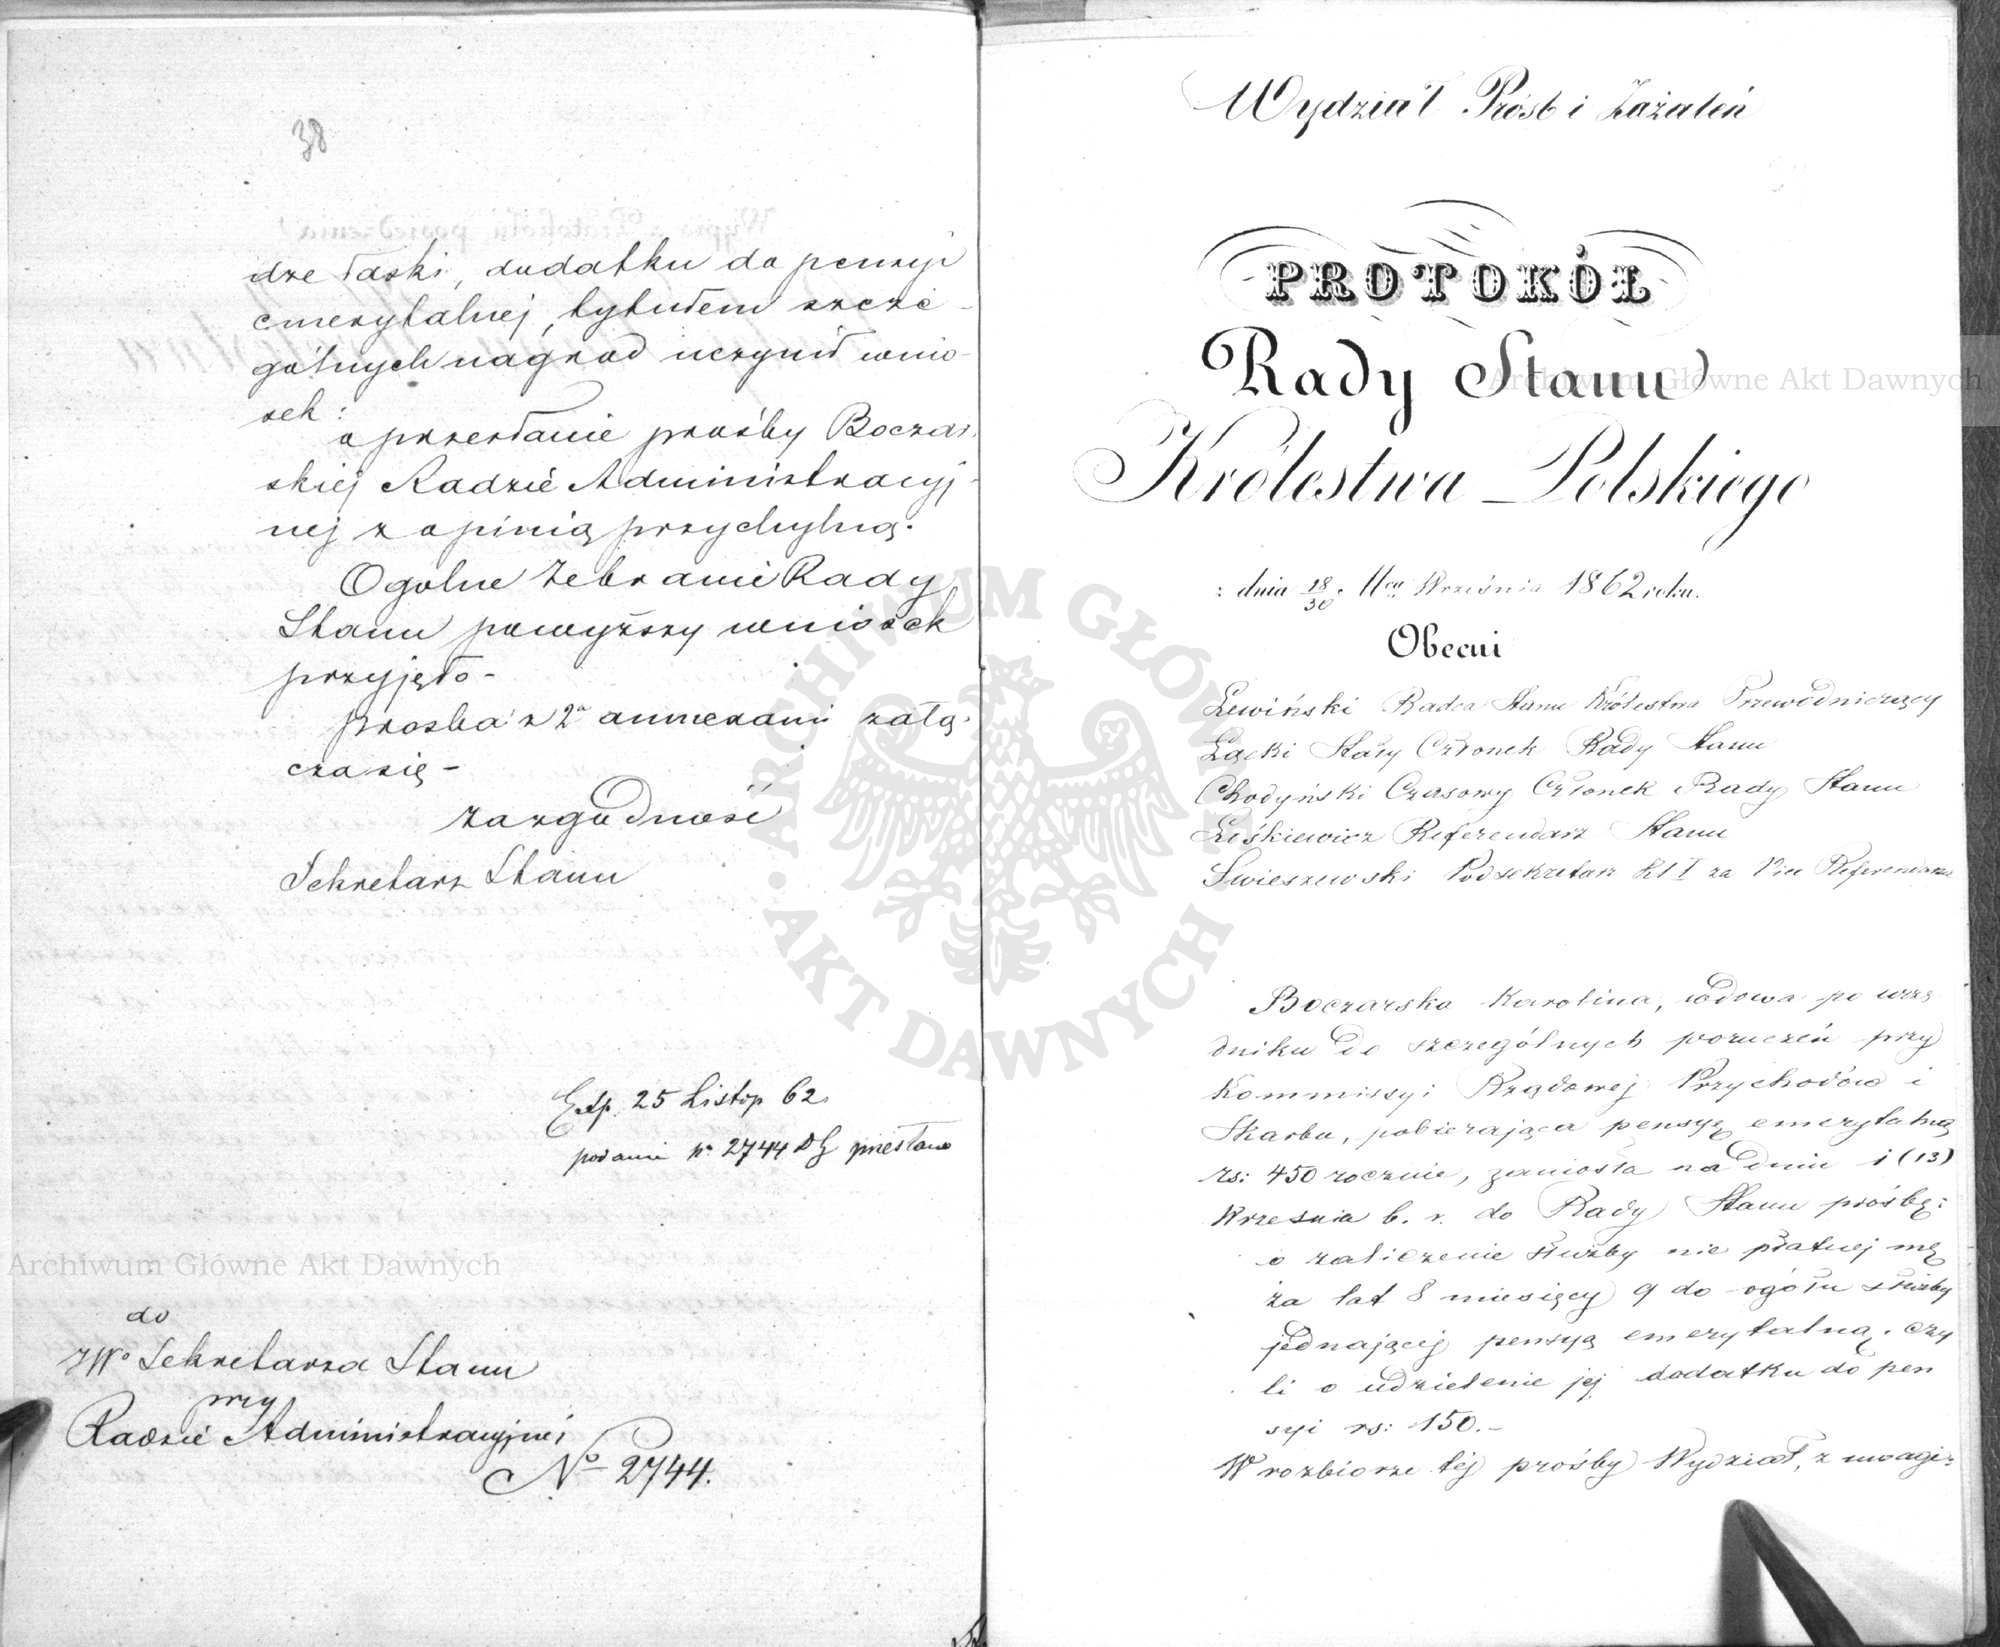 38
dze łaski, dodatku do pensyi
emerytalnej, tytułem szcze-
gólnych nagrod uczynił wnio-
sek:
o przesłanie prośby Boczar-
skiej Radzie Administracyj-
nej z opinią przychylną.
Ogolne Zebranie Rady
Stanu powyższy wniosek
przyjęło-
prosba z 2a annexami załą-
cza się-
Za zgodność
Sekretarz Stanu
Exp. 25 Listop 62.
podanie No 2744 przesłano
do
JWo Sekretarza Stanu
przy
Radzie Administracyjnej
No 2744.
Wydział Próśb i Zażaleń
PROTOKÓŁ
Rady Stanu
Królestwa Polskiego
z dnia 18/30 Września 1862 roku.
Obecni
Lewiński Radca Stanu Królestwa Przewodniczący
Łącki Stały Członek Rady Stanu
Chodyński Czasowy Członek Rady Stanu
Leśkiewicz Referendarz Stanu
Swieszewski Podsekretarz Kl I za Vice Referendarza
Boczarska Karolina, wdowa po urzę
dniku do szczególnych poruczeń przy
Kommissyi Rządowej Przychodów i
Skarbu, pobierająca pensyę emerytalną
rs: 450 rocznie, zaniosła na dniu 1 (13)
Września b. r. do Rady Stanu prośbę:
o zaliczenie służby nie płatnej mę
ża lat 8 miesięcy 9 do ogółu służby
jednającej pensyą emerytalną. czy
li o udzielenie jej dodatku do pen
syi rs: 150.-
W rozbiorze tej prośby Wydział, z uwagi:
Archiwum Główne Akt Dawnych
Archiwum Główne Akt Dawnych
ARCHIWUM GŁÓWNE AKT DAWNYCH